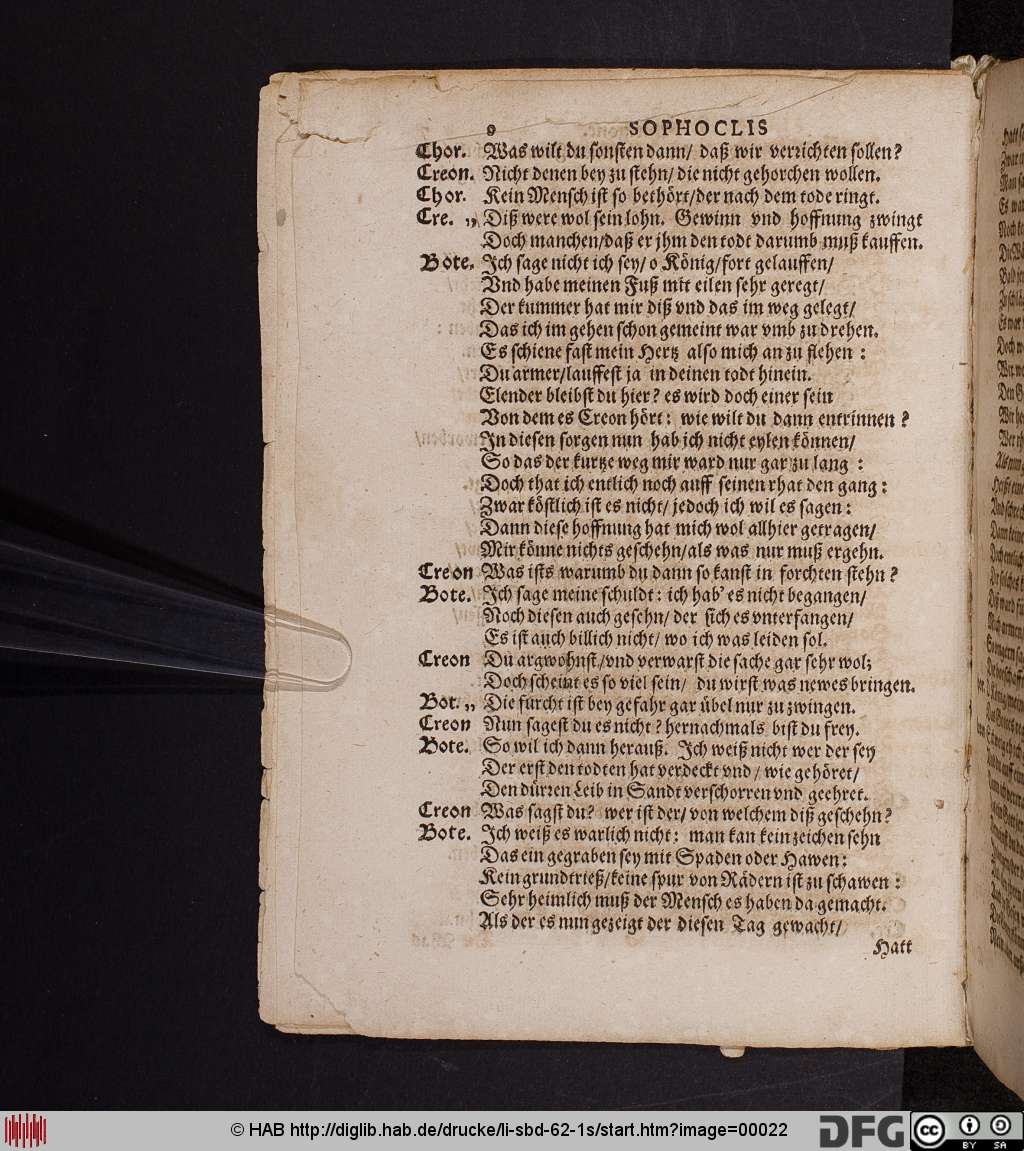 SOPHOCLIS
Chor. Was wilt du sonsten dann/ daß wir verrichten sollen?
Creon. Nicht denen bey zu stehn/ die nicht gehorchen wollen.
Chor. Kein Mensch ist so bethört/der nach dem tode ringt.
Cre. „ Diß were wol sein lohn. Gewinn vnd hoffnung zwingt
Doch manchen/daß er jhm den todt darumb muß kauffen.
Bote. Ich sage nicht ich sey/ o König/fort gelauffen/
Vnd habe meinen Fuß mit eilen sehr geregt/
Der kummer hat mir diß vnd das im weg gelegt/
Das ich im gehen schon gemeint war vmb zu drehen.
Es schiene fast mein Hertz also mich an zu flehen :
Du armer/lauffest ja in deinen todt hinein.
Elender bleibst du hier? es wird doch einer sein
Von dem es Creon hört: wie wilt du dann entrinnen ?
In diesen sorgen nun hab ich nicht eylen können/
So das der kurtze weg mir ward nur gar zu lang :
Doch that ich entlich noch auff seinen rhat den gang :
Zwar köstlich ist es nicht/ jedoch ich wil es sagen :
Dann diese hoffnung hat mich wol allhier getragen/
Mir könne nichts geschehn/als was nur muß ergehn.
Creon Was ists warumb du dann so kanst in forchten stehn ?
Bote. Ich sage meine schuldt: ich hab' es nicht begangen/
Noch diesen auch gesehn/ der sich es vnterfangen/
Es ist auch billich nicht/ wo ich was leiden sol.
Creon Du argwohnst/vnd verwarst die sache gar sehr wol;
Doch scheint es so viel sein/ du wirst was newes bringen.
Bot. „ Die furcht ist bey gefahr gar übel nur zu zwingen.
Creon Nun sagest du es nicht ? hernachmals bist du frey.
Bote. So wil ich dann herauß. Ich weiß nicht wer der sey
Der erst den todten hat verdeckt vnd/ wie gehöret/
Den dürren Leib in Sandt verschorren vnd geehret.
Creon Was sagst du? wer ist der/ von welchem diß geschehn?
Bote. Ich weiß es warlich nicht: man kan kein zeichen sehn
Das ein gegraben sey mit Spaden oder Hawen:
Kein grundtrieß/keine spur von Rädern ist zu schawen :
Sehr heimlich muß der Mensch es haben da gemacht.
Als der es nun gezeigt der diesen Tag gewacht/
Hatt
© HAB http://diglib.hab.de/drucke/li-sbd-62-1s/start.htm?image=00022
DFG
cc
BY SA